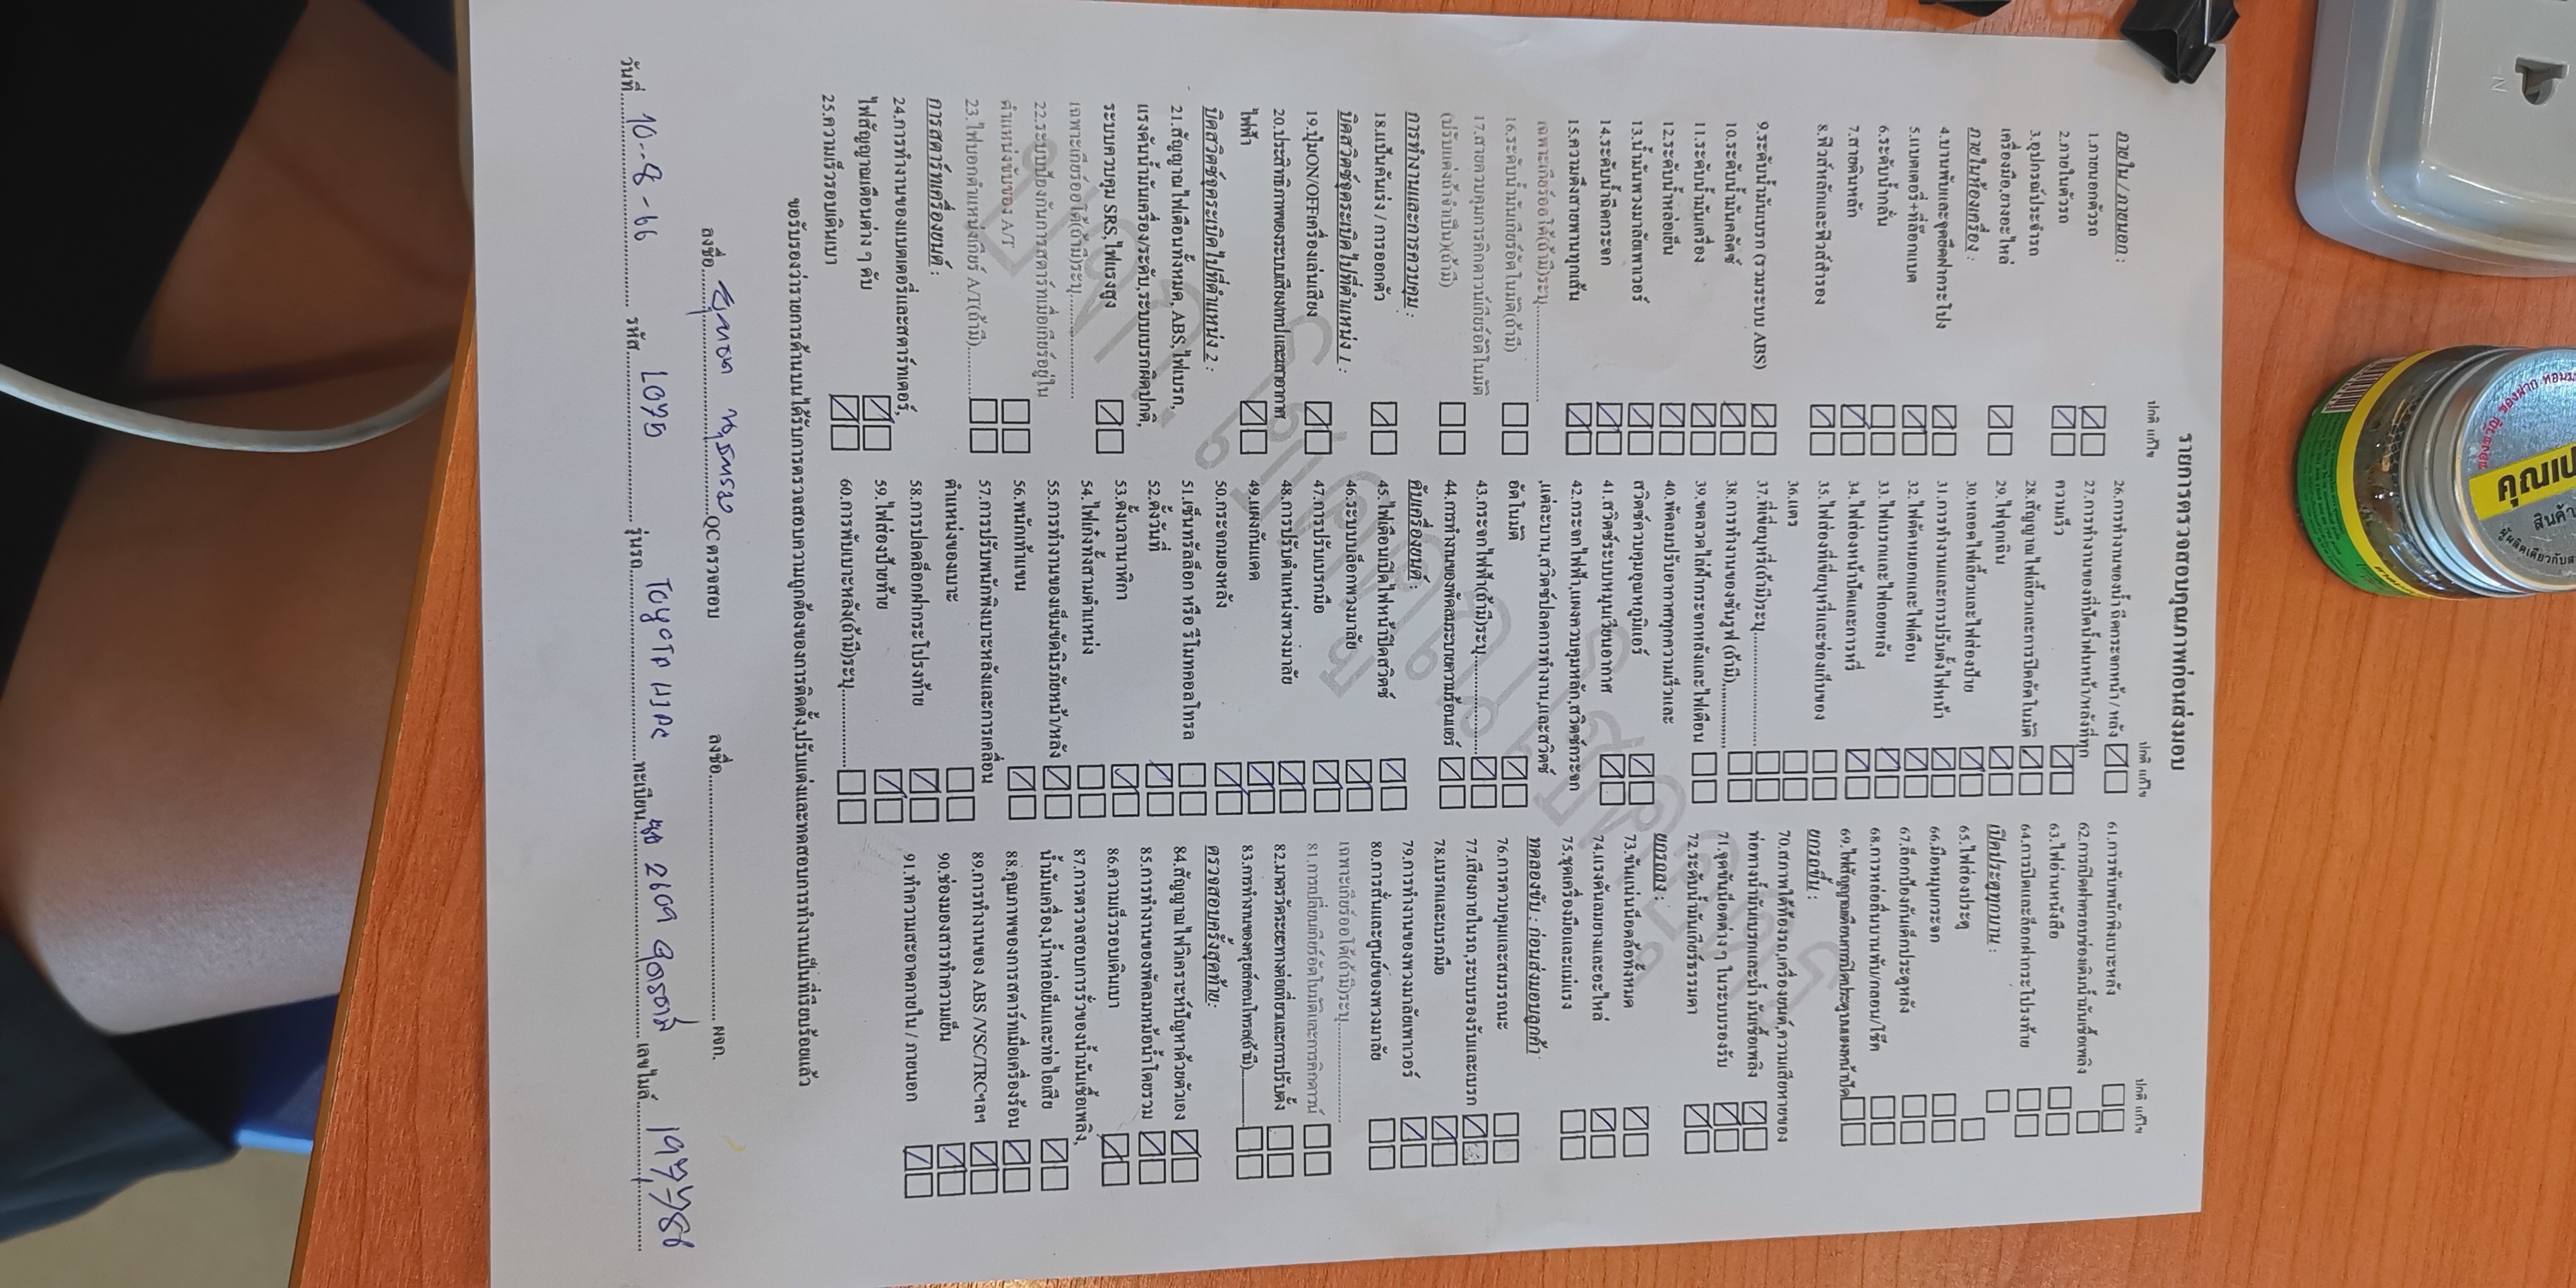 รายการตรวจสอบคุณภาพก่อนส่งมอบ
ปกติ แก้ไข
ภายใน / ภายนอก :
1.ภายนอกตัวรถ
2.ภายในตัวรถ
3.อุปกรณ์ประจำรถ
เครื่องมือ,ยางอะไหล่
ภายในห้องเครื่อง :
4.บานพับและจุดยึดฝากระโปง
5.แบตเตอรี่+ทล็อกแบต
6.ระดับน้ำกลั่น
7.สายดินหลัก
8.ฟิวส์หลักและฟิวส์สำรอง
9.ระดับน้ำมันเบรก (รวมระบบ ABS)
10.ระดับน้ำมันคลัตช์
11.ระดับน้ำมันเครื่อง
12.ระดับน้ำหล่อเย็น
13.น้ำมันพวงมาลัยพาเวอร์
14.ระดับน้ำฉีดกระจก
15.ความตึงสายพานทุกเส้น
เฉพาะเกียร์ออโต้(ถ้ามี)ระบุ..............
16.ระดับน้ำมันเกียร์อัตโนมัติ(ถ้ามี)
17.สายควบคุมการคิกดาวน์เกียร์อัติโนมัติ
(ปรับแต่งถ้าจำเป็น)(ถ้ามี)
การทำงานและการควบคุม :
18.แป้นคันเร่ง / การออกตัว
บิดสวิตช์จุดระเบิดไปที่ตำแหน่ง 1 :
19.ปุ่มON/OFFเครื่องเล่นเสียง
20.ประสิทธิภาพของระบบเสียง/เทป/และเสาอากาศ
ไฟฟ้า
บิดสวิตช์จุดระเบิดไปที่ตำแหน่ง 2 :
21.สัญญาณไฟเตือนทั้งหมด, ABS,ไฟเบรก,
แรงดันน้ำมันเครื่อง/ระดับ,ระบบเบรกผิดปกติ,
ระบบควบคุม SRS,ไฟแรงสูง
เฉพาะเกียร์ออโต้(ถ้ามี)ระบุ..............
22.ระบบป้องกันการสตาร์ทเมื่อเกียร์อยู่ใน
ตำแหน่งขับของ A/T
23.ไฟบอกตำแหน่งเกียร์ A/T(ถ้ามี)..........
การสตาร์ทเครื่องยนต์ :
24.การทำงานของแบตเตอรี่และสตาร์ทเตอร์,
ไฟสัญญาณเตือนต่าง ๆ ดับ
25.ความเร็วรอบเดินเบา
ปกติ แก้ไข
26.การทำงานของน้ำฉีดกระจกหน้า / หลัง
27.การทำงานของที่ปัดน้ำฝนหน้า/หลังที่ทุก
ความเร็ว
28.สัญญาณไฟเลี้ยวและการปิดอัตโนมัติ
29.ไฟฉุกเฉิน
30.หลอดไฟเลี้ยวและไฟส่องป้าย
31.การทำงานและการปรับตั้งไฟหน้า
32.ไฟตัดหมอกและไฟเตือน
33.ไฟเบรกและไฟถอยหลัง
34.ไฟส่องหน้าปัดและการหรี่
35.ไฟส่องที่เขี่ยบุหรี่และช่องเก็บของ
36.แตร
37.ที่เขี่ยบุหรี่(ถ้ามี)ระบุ..........................
38.การทำงานของซันรูฟ (ถ้ามี)..............
39.ขดลวดไล่ฝ้ากระจกหลังและไฟเตือน
40.พัดลมปรับอากาศทุกความเร็วและ
สวิตช์ควบคุมอุณหภูมิแอร์
41.สวิตช์ระบบหมุนเวียนอากาศ
42.กระจกไฟฟ้า,แผงควบคุมหลัก,สวิตช์กระจก
,แต่ละบาน,สวิตช์ปลดการทำงาน,และสวิตช์
อัตโนมัติ
43.กระจกไฟฟ้า(ถ้ามี)ระบุ......................
44.การทำงานของพัดลมระบายความร้อนแอร์
ดับเครื่องยนต์ :
45.ไฟเตือนปิดไฟหน้าปิดสวิตช์
46.ระบบบล็อกพวงมาลัย
47.การปรับเบรกมือ
48.การปรับตำแหน่งพวงมาลัย
49.แผงกันแดด
50.กระจกมองหลัง
51.เซ็นทรัลล็อก หรือ รีโมทคอลโทรล
52.ตั้งวันที่
53.ตั้งเวลานาฬิกา
54.ไฟเก๋งทั้งสามตำแหน่ง
55.การทำงานของเข็มขัดนิรภัยหน้า/หลัง
56.พนักเท้าแขน
57.การปรับพนักพิงเบาะหลังและการเคลื่อน
ตำแหน่งของเบาะ
58.การปลดล็อกฝากระโปรงท้าย
59.ไฟส่องป้ายท้าย
60.การพับเบาะหลัง(ถ้ามี)ระบุ..................
ปกติ แก้ไข
61.การพับพนักพิงเบาะหลัง
62.การเปิดฝาครอบช่องเติมน้ำมันเชื้อเพลิง
63.ไฟอ่านหนังสือ
64.การปิดและล็อกฝากระโปรงท้าย
เปิดประตูทุกบาน :
65.ไฟส่องประตู
66.มือหมุนกระจก
67.ล็อกป้องกันเด็กประตูหลัง
68.การหล่อลื่นบานพับ/กลอน/โช๊ค
69.ไฟสัญญาณเตือนการปิดประตูบนแผงหน้าปัด
ยกรถขึ้น :
70.สภาพใต้ท้องรถ,เครื่องยนต์,ความเสียหายของ
ท่อทางน้ำมันเบรกและน้ำมันเชื้อเพลิง
71.จุดขันน็อตต่าง ๆ ในระบบรองรับ
72.ระดับน้ำมันเกียร์ธรรมดา
ยกรถลง :
73.ขันแน่นน็อตล้อทั้งหมด
74.แรงดันลมยางและอะไหล่
75.ชุดเครื่องมือและแม่แรง
ทดลองขับ : ก่อนส่งมอบลูกค้า
76.การควบคุมและสมรรถนะ
77.เสียงภายในรถ,ระบบรองรับและเบรก
78.เบรกและเบรกมือ
79.การทำงานของพวงมาลัยเพาเวอร์
80.การสั่นและศูนย์ของพวงมาลัย
เฉพาะเกียร์ออโต้(ถ้ามี)ระบุ..................
81.การเปลี่ยนเกียร์อัตโนมัติและการคิกดาวน์
82.มาตรวัดระยะทางต่อเที่ยวและการปรับตั้ง
83.การทำงานของครุยส์คอนโทรล(ถ้ามี)..........
ตรวจสอบครั้งสุดท้าย:
84.สัญญาณไฟวิเคราะห์ปัญหาด้วยตัวเอง
85.การทำงานของพัดลมหม้อน้ำโดยรวม
86.ความเร็วรอบเดินเบา
87.การตรวจสอบการรั่วของน้ำมันเชื้อเพลิง,
น้ำมันเครื่อง,น้ำหล่อเย็นและท่อไอเสีย
88.คุณภาพของการสตาร์ทเมื่อเครื่องร้อน
89.การทำงานของ ABS /VSC/TRCฯลฯ
90.ช่องมองสารทำความเย็น
91.ทำความสะอาดภายใน / ภายนอก
ขอรับรองว่ารายการด้านบนได้รับการตรวจสอบความถูกต้องของการติดตั้ง,ปรับแต่งและทดสอบการทำงานเป็นที่เรียบร้อยแล้ว
ลงชื่อ..............................QC ตรวจสอบ ลงชื่อ.............................. ผจก.
วันที่ 10-8-66 รหัส L075 รุ่นรถ TOYOTA ทะเบียน 2609 อุดรธานี เลขไมล์
คุณเป
สินค้า
N